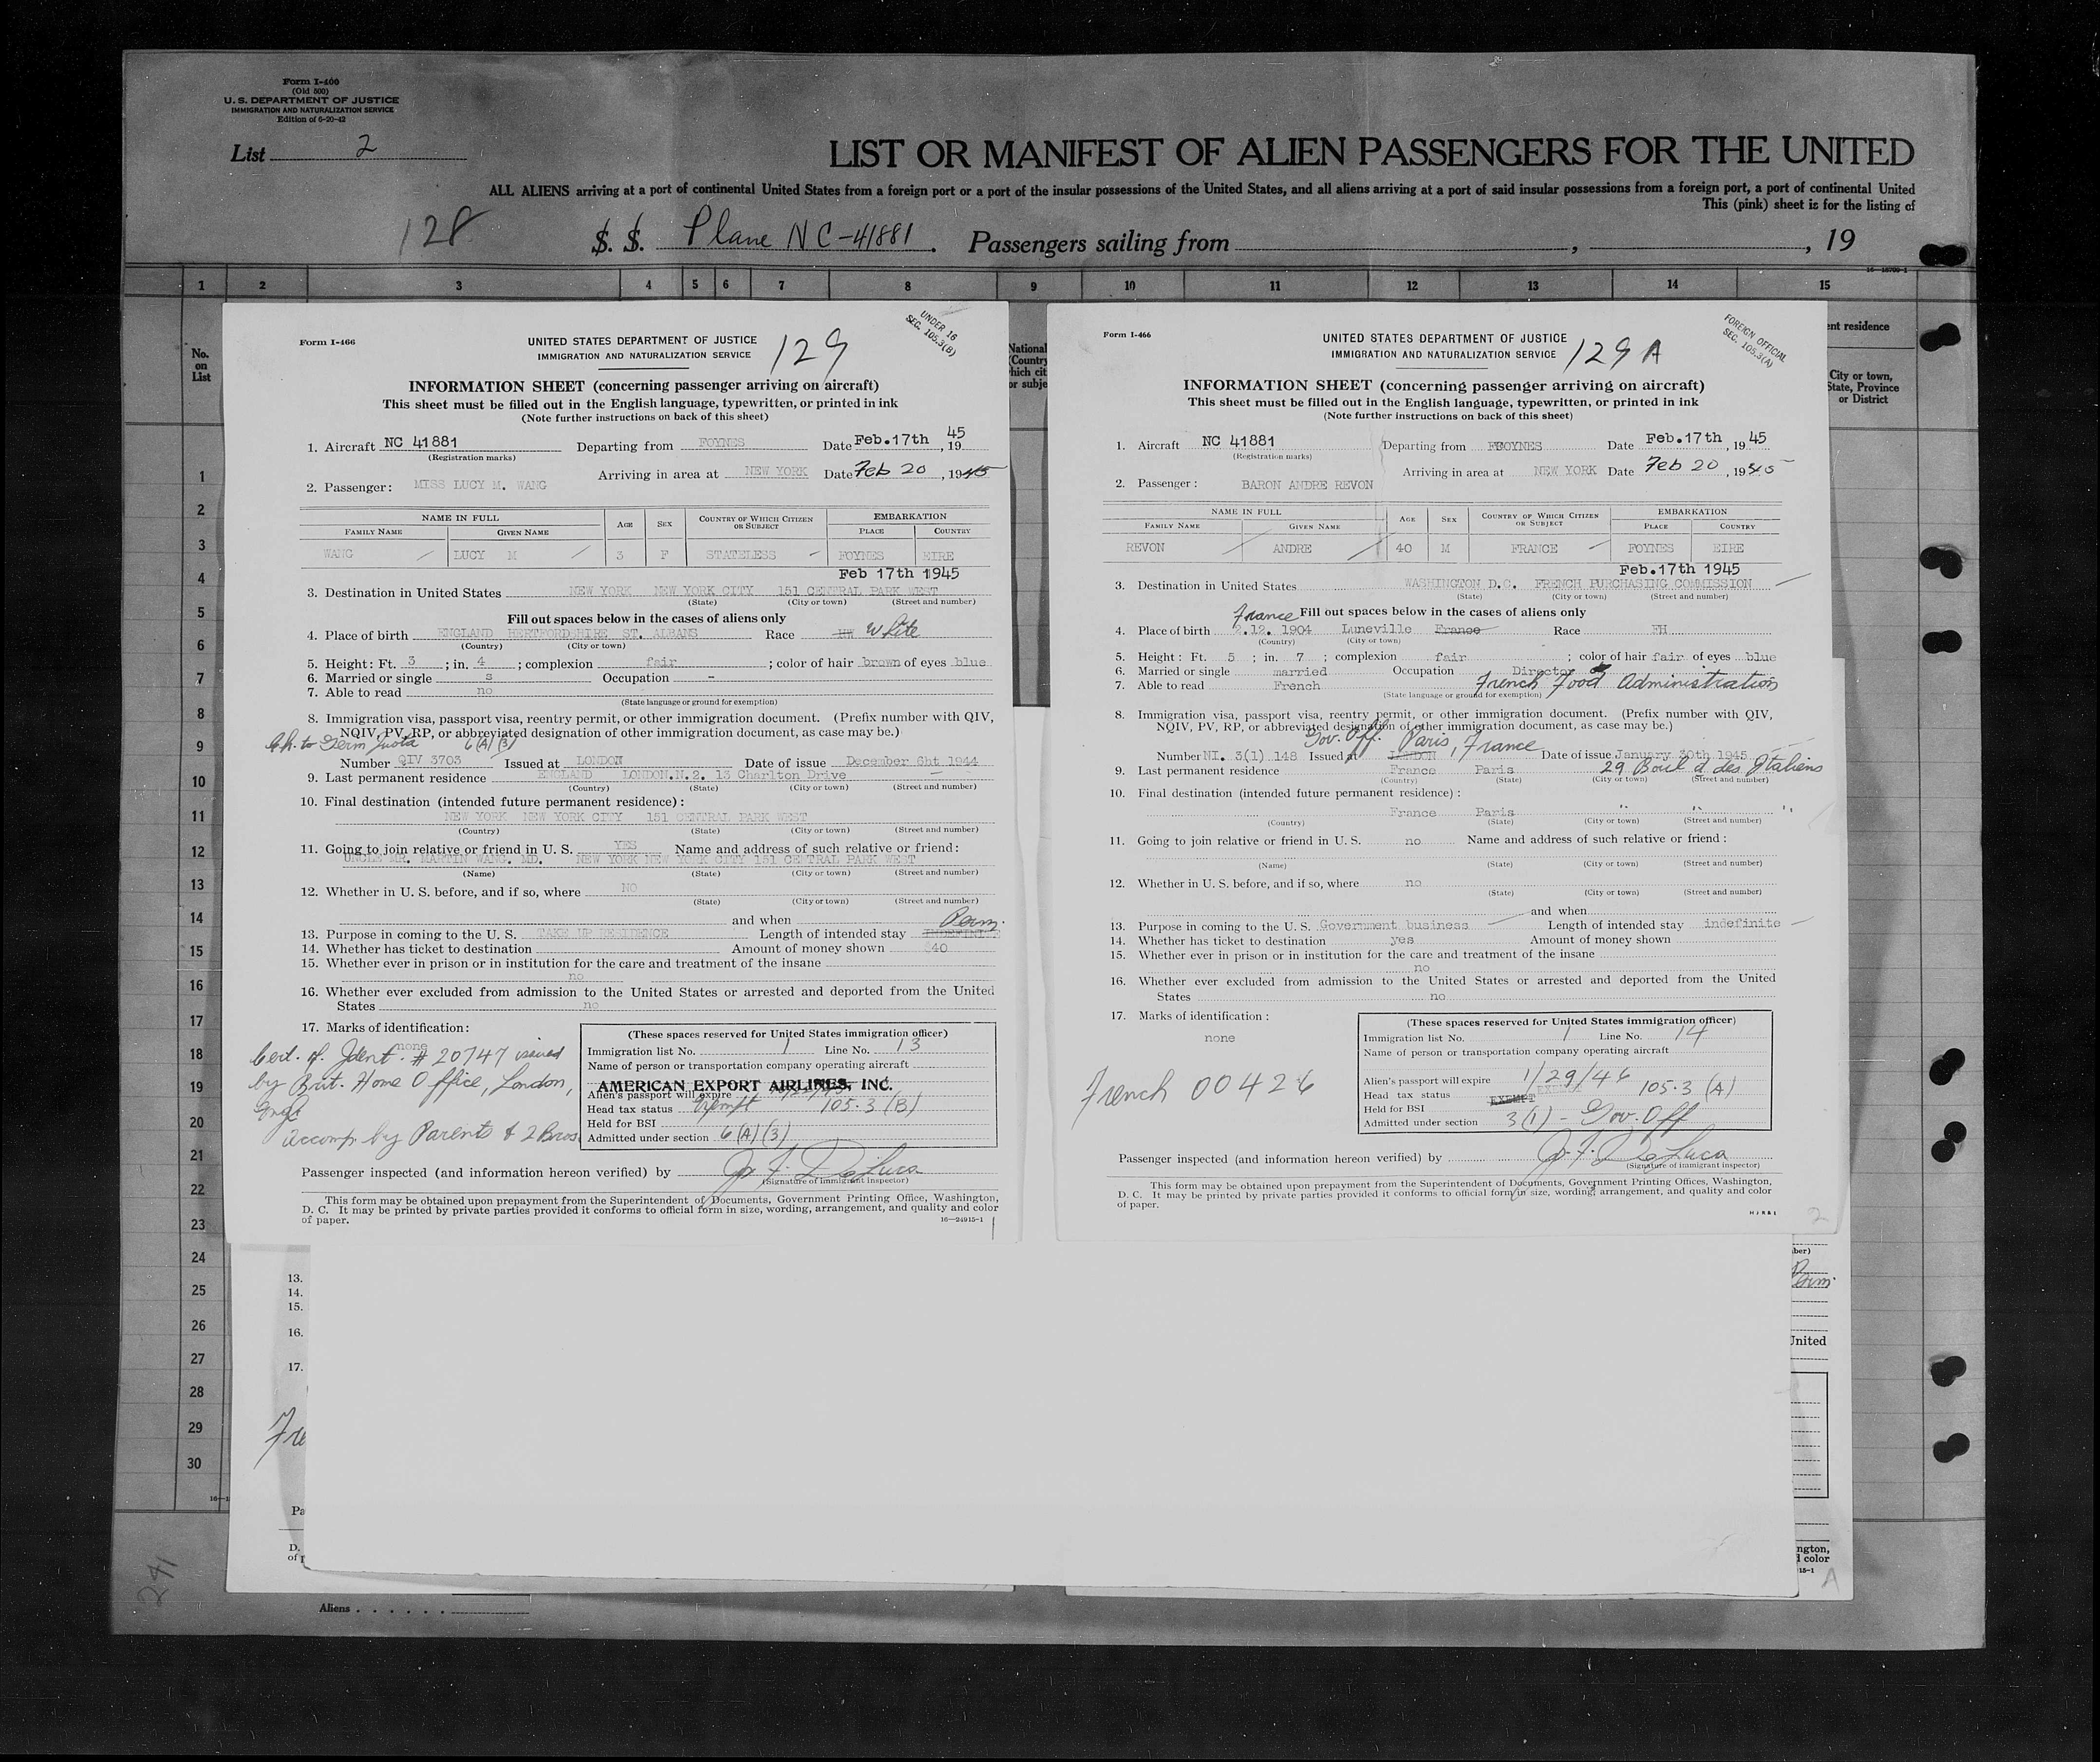 Form I-400
(Old 500)
U. S. DEPARTMENT OF JUSTICE
IMMIGRATION AND NATURALIZATION SERVICE
Edition of 6-20-42
List 2
LIST OR MANIFEST OF ALIEN PASSENGERS FOR THE UNITED
ALL ALIENS arriving at a port of continental United States from a foreign port or a port of the insular possessions of the United States, and all aliens arriving at a port of said insular possessions from a foreign port, a port of continental United
This (pink) sheet is for the listing of
128 S. S. Plane NC-41881. Passengers sailing from , , 19
1 2 3 4 5 6 7 8 9 10 11 12 13 14 15
No. on List
1
2
3
4
5
6
7
8
9
10
11
12
13
14
15
16
17
18
19
20
21
22
23
24
25
26
27
28
29
30
Form I-466
UNDER 16
SEC. 105.3(B)
UNITED STATES DEPARTMENT OF JUSTICE
IMMIGRATION AND NATURALIZATION SERVICE
129
INFORMATION SHEET (concerning passenger arriving on aircraft)
This sheet must be filled out in the English language, typewritten, or printed in ink
(Note further instructions on back of this sheet)
1. Aircraft NC 41881 Departing from FOYNES Date Feb.17th, 1945
(Registration marks)
Arriving in area at NEW YORK Date Feb 20, 1945
2. Passenger: MISS LUCY M. WANG
NAME IN FULL AGE SEX COUNTRY OF WHICH CITIZEN OR SUBJECT EMBARKATION
FAMILY NAME GIVEN NAME PLACE COUNTRY
WANG LUCY M 3 F STATELESS FOYNES EIRE
Feb 17th 1945
3. Destination in United States NEW YORK NEW YORK CITY 151 CENTRAL PARK WEST
(State) (City or town) (Street and number)
Fill out spaces below in the cases of aliens only
4. Place of birth ENGLAND HERTFORDSHIRE ST. ALBANS Race White
(Country) (City or town)
5. Height: Ft. 3 ; in. 4 ; complexion fair ; color of hair brown of eyes blue
6. Married or single s Occupation -
7. Able to read no
(State language or ground for exemption)
8. Immigration visa, passport visa, reentry permit, or other immigration document. (Prefix number with QIV,
NQIV, PV, RP, or abbreviated designation of other immigration document, as case may be.)
Ch. to Germ Quota 6(A)(3)
Number QIV 3703 Issued at LONDON Date of issue December 6ht 1944
9. Last permanent residence ENGLAND LONDON.N.2. 13 Charlton Drive
(Country) (State) (City or town) (Street and number)
10. Final destination (intended future permanent residence):
NEW YORK NEW YORK CITY 151 CENTRAL PARK WEST
(Country) (State) (City or town) (Street and number)
11. Going to join relative or friend in U. S. YES Name and address of such relative or friend:
UNCLE MR. MARTIN WANG. MD. NEW YORK NEW YORK CITY 151 CENTRAL PARK WEST
(Name) (State) (City or town) (Street and number)
12. Whether in U. S. before, and if so, where NO
(State) (City or town) (Street and number)
and when
13. Purpose in coming to the U. S. TAKE UP RESIDENCE Length of intended stay INDEFINITE Perm.
14. Whether has ticket to destination Amount of money shown $40
15. Whether ever in prison or in institution for the care and treatment of the insane
no
16. Whether ever excluded from admission to the United States or arrested and deported from the United
States no
17. Marks of identification:
none
Cert. of Ident. # 20747 issued
by Brit. Home Office, London,
Engl.
accomp. by Parents & 2 Bros.
(These spaces reserved for United States immigration officer)
Immigration list No. 1 Line No. 13
Name of person or transportation company operating aircraft
AMERICAN EXPORT AIRLINES, INC.
Alien's passport will expire
Head tax status Exempt 105.3 (B)
Held for BSI
Admitted under section 6(A)(3)
Passenger inspected (and information hereon verified) by J. F. DeLuca
(Signature of immigrant inspector)
This form may be obtained upon prepayment from the Superintendent of Documents, Government Printing Office, Washington,
D. C. It may be printed by private parties provided it conforms to official form in size, wording, arrangement, and quality and color
of paper. 16—24915-1
1
National
(Country
hich cit
or subje
Form I-466
FOREIGN OFFICIAL
SEC. 105.3(A)
UNITED STATES DEPARTMENT OF JUSTICE
IMMIGRATION AND NATURALIZATION SERVICE
129 A
INFORMATION SHEET (concerning passenger arriving on aircraft)
This sheet must be filled out in the English language, typewritten, or printed in ink
(Note further instructions on back of this sheet)
1. Aircraft NC 41881 Departing from FOYNES Date Feb.17th, 1945
(Registration marks)
Arriving in area at NEW YORK Date Feb 20, 1945
2. Passenger: BARON ANDRE REVON
NAME IN FULL AGE SEX COUNTRY OF WHICH CITIZEN OR SUBJECT EMBARKATION
FAMILY NAME GIVEN NAME PLACE COUNTRY
REVON ANDRE 40 M FRANCE FOYNES EIRE
Feb.17th 1945
3. Destination in United States WASHINGTON D.C. FRENCH PURCHASING COMMISSION
(State) (City or town) (Street and number)
Fill out spaces below in the cases of aliens only
France
4. Place of birth 2.12. 1904 Luneville France Race FH
(Country) (City or town)
5. Height: Ft. 5 ; in. 7 ; complexion fair ; color of hair fair of eyes blue
6. Married or single married Occupation Director of
7. Able to read French French Food Administration
(State language or ground for exemption)
8. Immigration visa, passport visa, reentry permit, or other immigration document. (Prefix number with QIV,
NQIV, PV, RP, or abbreviated designation of other immigration document, as case may be.)
Gov. Off. Paris, France
Number NI. 3(1) 148 Issued at LONDON Date of issue January 30th 1945
9. Last permanent residence France Paris 29 Boul'd des Italiens
(Country) (State) (City or town) (Street and number)
10. Final destination (intended future permanent residence):
France Paris " " "
(Country) (State) (City or town) (Street and number)
11. Going to join relative or friend in U. S. no Name and address of such relative or friend:
(Name) (State) (City or town) (Street and number)
12. Whether in U. S. before, and if so, where no
(State) (City or town) (Street and number)
and when
13. Purpose in coming to the U. S. Government business Length of intended stay indefinite
14. Whether has ticket to destination yes Amount of money shown
15. Whether ever in prison or in institution for the care and treatment of the insane
no
16. Whether ever excluded from admission to the United States or arrested and deported from the United
States no
17. Marks of identification:
none
French 00426
(These spaces reserved for United States immigration officer)
Immigration list No. 1 Line No. 14
Name of person or transportation company operating aircraft
Alien's passport will expire 1/29/46
Head tax status EXEMPT 105.3 (A)
Held for BSI
Admitted under section 3(1) - Gov. Off
Passenger inspected (and information hereon verified) by J. F. DeLuca
(Signature of immigrant inspector)
This form may be obtained upon prepayment from the Superintendent of Documents, Government Printing Offices, Washington,
D. C. It may be printed by private parties provided it conforms to official form in size, wording, arrangement, and quality and color
of paper.
H J R & 1
2
ent residence
City or town,
State, Province
or District
13.
14.
15.
16.
17.
Fre
Pa
D.
of p
ber)
Perm.
United
ngton,
d color
15-1
A
241
Aliens